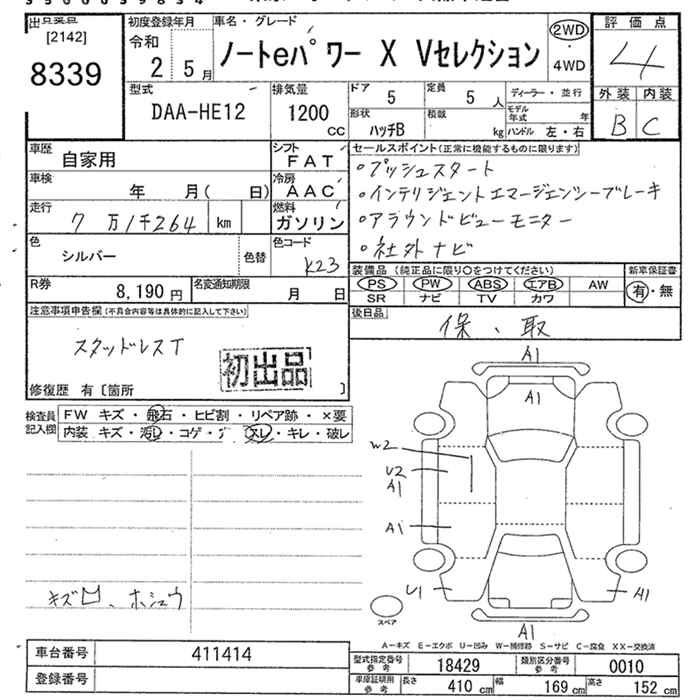 出品番
[2142]
8339
初度登録年月
令和
2年 5月
車名・グレード
ノートeパワー X Vセレクション
2WD
・
4WD
評価点
4
外装 内装
B C
型式
DAA-HE12
排気量
1200
CC
ドア
5
定員
5 人
ディーラー・並行
形状
ハッチB
積載
kg
モデル年式 年
ハンドル 左・右
車歴
自家用
シフト
FAT
車検
年 月( 日)
冷房
AAC
走行
7万1千264 km
燃料
ガソリン
色
シルバー
色替
色コード
K23
R券
8,190 円
名変通知期限
月 日
セールスポイント(正常に機能するものに限ります)
・プッシュスタート
・インテリジェントエマージェンシーブレーキ
・アラウンドビューモニター
・社外ナビ
装備品 (純正品に限り○をつけてください)
PS PW ABS エアB AW
SR ナビ TV カワ
新車保証書
有・無
後日品
保、取
注意事項申告欄(不具合内容等は具体的に記入して下さい)
スタッドレスT
初出品
修復歴 有〔箇所 〕
検査員記入欄
FW キズ・飛石・ヒビ割・リペア跡・×要
内装 キズ・汚レ・コゲ・ ・スレ・キレ・破レ
A1
A1
W2
U2
A1
A1
U1
A1
A1
キズ凹、ホシュウ
スペア
A-キズ E-エクボ U-凹み W-補修跡 S-サビ C-腐食 XX-交換済
車台番号
411414
登録番号
型式指定番号 参考
18429
類別区分番号 参考
0010
車庫証明用 参考
長さ 410 cm
幅 169 cm
高さ 152 cm